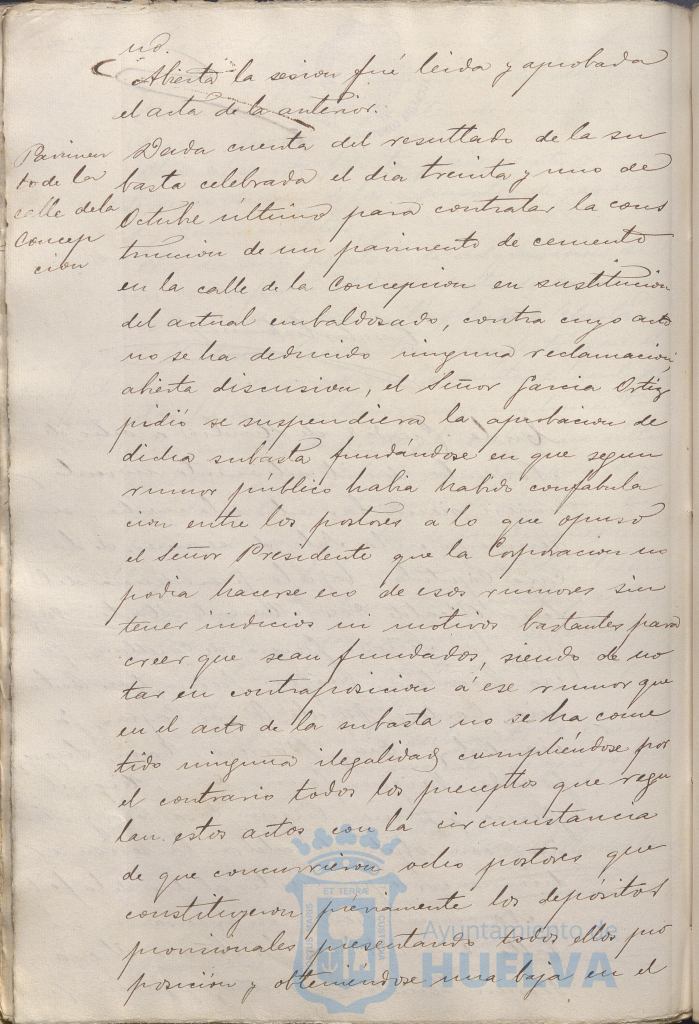 no.
Abierta la sesion fué leida y aprobada
el acta de la anterior.
Pavimen
to de la
calle de la
Concep
cion
Dada cuenta del resultado de la su
basta celebrada el dia treinta y uno de
Octubre último para contratar la cons
truccion de un pavimento de cemento
en la calle de la Concepcion en sustitucion
del actual embaldosado, contra cuyo acto
no se ha deducido ninguna reclamacion,
abierta discusion, el Señor Garcia Ortiz
pidió se suspendiera la aprobacion de
dicha subasta fundándose en que segun
rumor público habia habido confabula
cion entre los postores á lo que opuso
el Señor Presidente que la Corporacion no
podia hacerse eco de esos rumores sin
tener indicios ni motivos bastantes para
creer que sean fundados, siendo de no
tar en contraposicion á ese rumor que
en el acto de la subasta no se ha come
tido ninguna ilegalidad cumpliéndose por
el contrario todos los preceptos que regu
lan estos actos con la circunstancia
de que concurrieron ocho postores que
constituyeron préviamente los depósitos
provisionales presentando todos ellos pro
posición y obteniéndose una baja en el
Ayuntamiento de
HUELVA